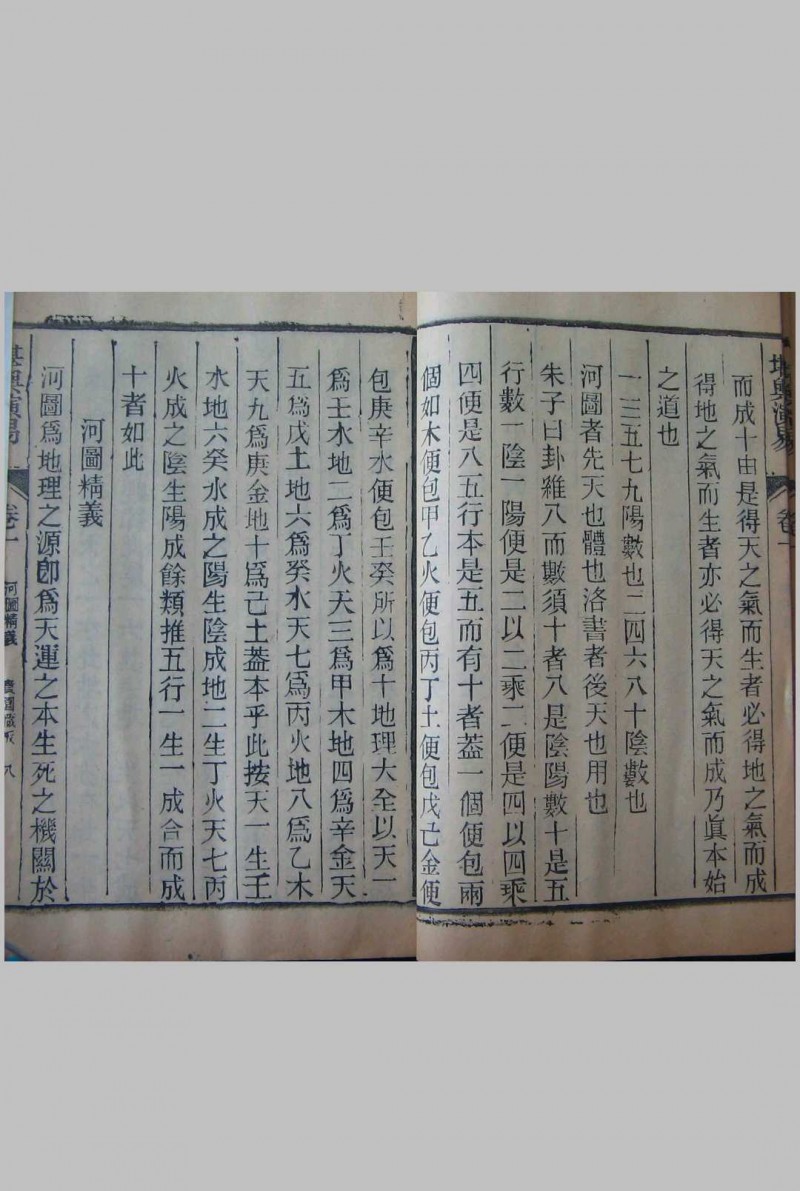 堪輿演易
卷一
而成十由是得天之氣而生者必得地之氣而成
得地之氣而生者亦必得天之氣而成乃眞本始
之道也
一三五七九陽數也二四六八十陰數也
河圖者先天也體也洛書者後天也用也
朱子曰卦雖八而數須十者八是陰陽數十是五
行數一陰一陽便是二以二乘二便是四以四乘
四便是八五行本是五而有十者蓋一個便包兩
個如木便包甲乙火便包丙丁土便包戊己金便
包庚辛水便包壬癸所以爲十地理大全以天一
爲壬水地二爲丁火天三爲甲木地四爲辛金天
五爲戊土地六爲癸水天七爲丙火地八爲乙木
天九爲庚金地十爲己土蓋本乎此按天一生壬
水地六癸水成之陽生陰成地二生丁火天七丙
火成之陰生陽成餘類推五行一生一成合而成
十者如此
河圖精義
河圖爲地理之源卽爲天運之本生死之機關於
堪輿演易
卷一
河圖精義
藏板
八